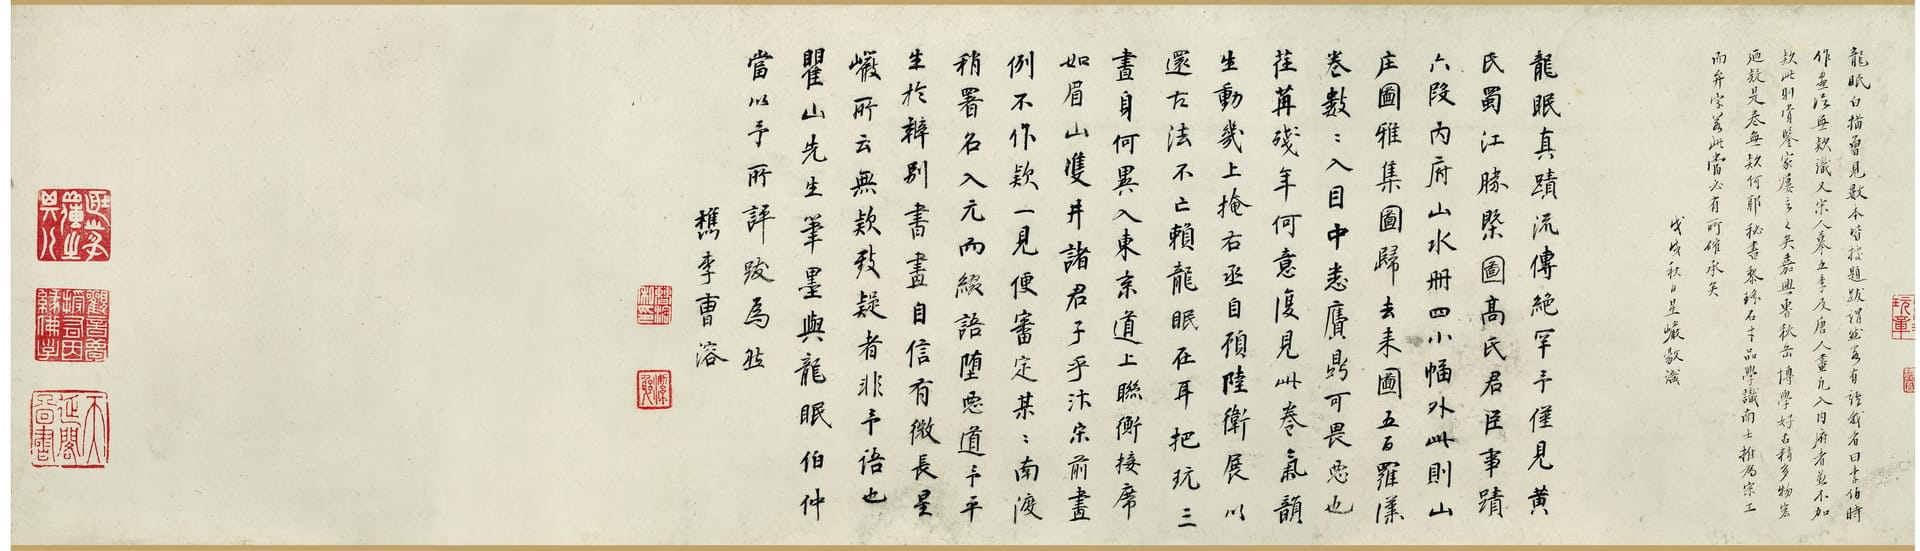 龍眠白描曾見數本皆接題跋謂無有誌款者曰李伯時
作畫從無款識又宋人摹立李及唐人畫凡入內府者並不加
款此則賞鑒家屢言之矣嘉興曹秋岳博學好古精多物宏
廼疑是卷無款何耶秘書黎瑤石士品學識南士推為宗工
而弁字若此當必有所確承矣
戊戌秋日星巘敬識
龍眠真蹟流傳絕罕予僅見黃
氏蜀江勝槩圖高氏君臣事蹟
六段內府山水冊四小幅外此則山
庄圖雅集圖歸去来圖五百羅漢
卷數:入目中悉贗鼎可畏惡也
荏苒殘年何意復見此卷氣韻
生動幾上掩右丞自顧陸衛展以
還古法不亡賴龍眠在耳把玩三
晝身何異入東京道上聯衡接席
如眉山雙井諸君子乎汴宋前畫
例不作款一見便審定某:南渡
稍署名入元而綴語堕惡道予平
生於辨別書畫自信有微長星
巘所云無款致疑者非予語也
瞿山先生筆墨與龍眠伯仲
當以予所評跋為然
檇李曹溶